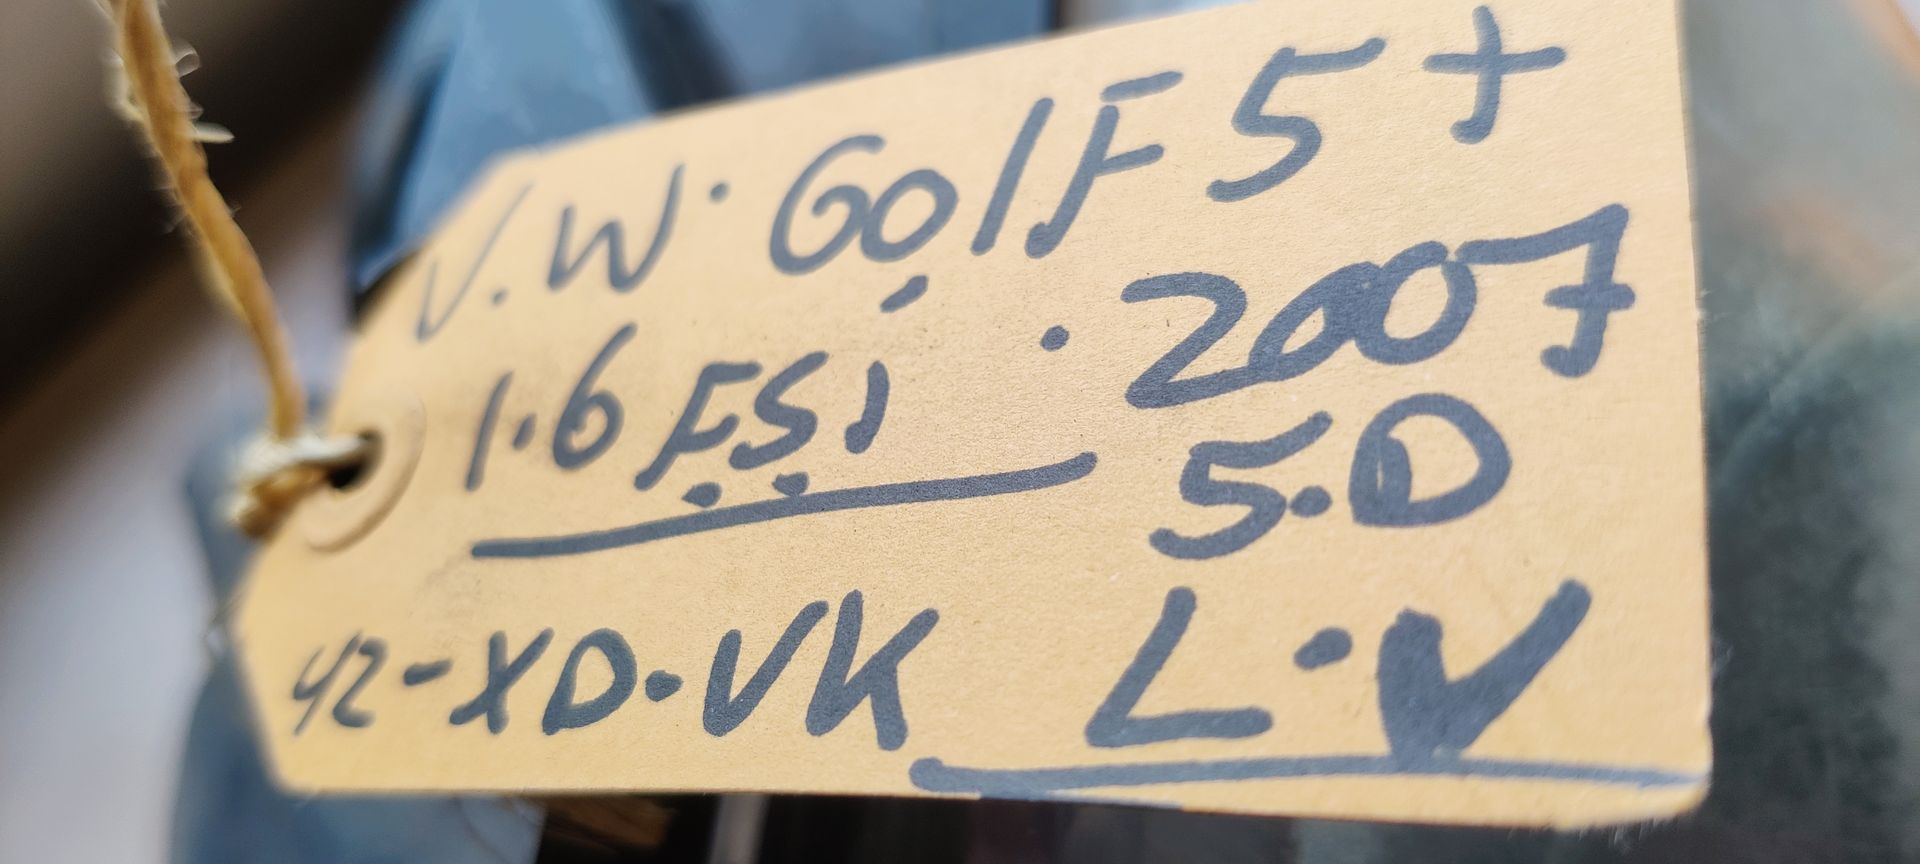 V.W. GolF 5+
1.6 FSI . 2007
5.D
42-XD.VK L.V